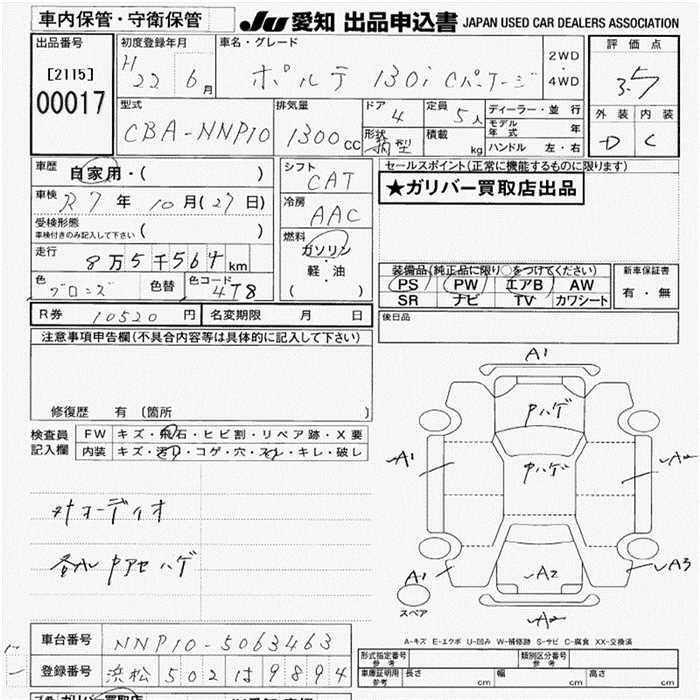 車内保管・守衛保管
JU 愛知 出品申込書 JAPAN USED CAR DEALERS ASSOCIATION
出品番号
[2115]
00017
初度登録年月
H 22 6月
車名・グレード
ポルテ 130i Cパッケージ
2WD
4WD
評価点
3.5
外装 内装
D C
型式
CBA-NNP10
排気量
1300cc
ドア
4
形状
箱型
定員
5人
積載
kg
ディーラー・並行
モデル年式 年
ハンドル 左・右
車歴
自家用・( )
車検
R7年 10月(27日)
受検形態
車検付きのみ記入して下さい ( )
走行
8万5千564km
色
ブロンズ
色替
色コード
4T8
シフト
CAT
冷房
AAC
燃料
ガソリン
・
軽・油
( )
セールスポイント(正常に機能するものに限ります)
★ガリバー買取店出品
装備品(純正品に限り○をつけてください)
PS PW エアB AW
SR ナビ TV カワシート
新車保証書
有・無
R券 10520円
名変期限 月 日
後日品
注意事項申告欄(不具合内容等は具体的に記入して下さい)
修復歴 有 〔箇所 〕
検査員
記入欄
FW キズ・飛石・ヒビ割・リペア跡・X要
内装 キズ・汚れ・コゲ・穴・スレ・キレ・破レ
オーディオ
A1
中ハゲ
中ハゲ
A1
A1
A2
A3
A2
スペア
A-キズ E-エクボ U-凹み W-補修跡 S-サビ C-腐食 XX-交換済
車台番号 NNP10-5063463
登録番号 浜松 502 は 9894
形式指定番号
参考
類別区分番号
参考
車庫証明用
参考
長さ cm 幅 cm 高さ cm
ガリバー買取店